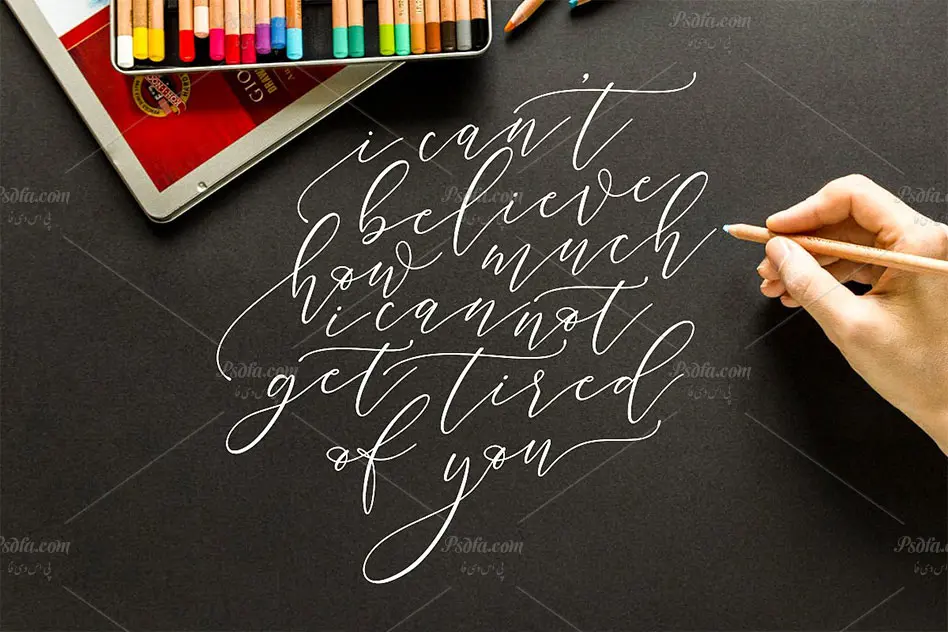 i can't
believe
how much
i cannot
get tired
of you
Psdfa.com
پی اس دی فا
Psdfa.com
پی اس دی فا
Psdfa.com
پی اس دی فا
Psdfa.com
پی اس دی فا
Psdfa.com
پی اس دی فا
Psdfa.com
پی اس دی فا
Psdfa.com
پی اس دی فا
Psdfa.com
پی اس دی فا
Psdfa.com
پی اس دی فا